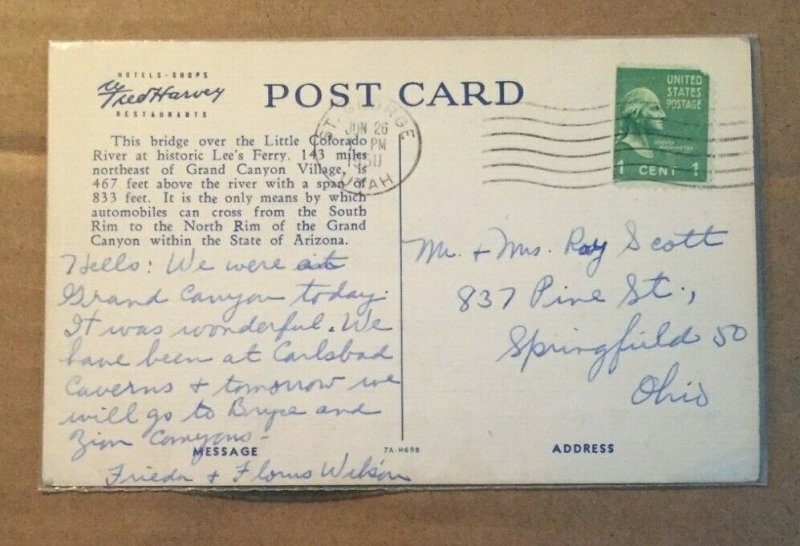 HOTELS - SHOPS
Fred Harvey
RESTAURANTS
POST CARD
This bridge over the Little Colorado
River at historic Lee's Ferry, 143 miles
northeast of Grand Canyon Village, is
467 feet above the river with a span of
833 feet. It is the only means by which
automobiles can cross from the South
Rim to the North Rim of the Grand
Canyon within the State of Arizona.
Hello: We were at
Grand Canyon today.
It was wonderful. We
have been at Carlsbad
Caverns + tomorrow we
will go to Bryce and
Zion Canyons -
Frieda + Wilson
MESSAGE
7A-H698
ST. GEORGE
JUN 26
PM
UTAH
UNITED
STATES
POSTAGE
GEORGE
WASHINGTON
1 CENT 1
Mr. + Mrs. Roy Scott
837 Pine St.,
Springfield 50
Ohio
ADDRESS